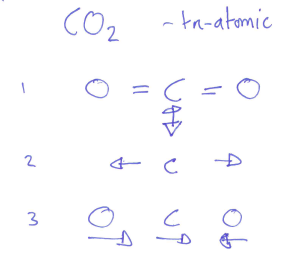 CO2 - tri-atomic
1 O = C = O
2 C
3 O C O